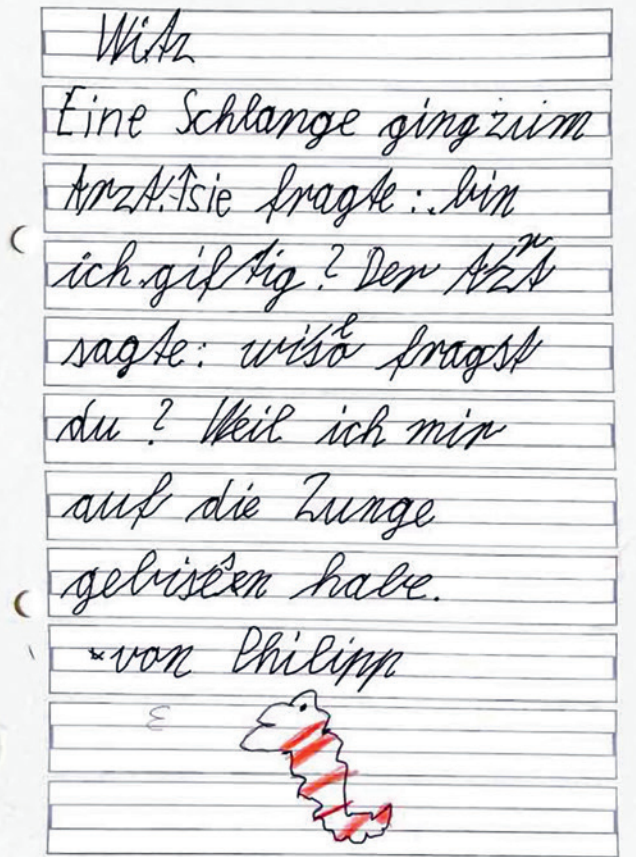 Witz
Eine Schlange ging zum
Arzt. sie fragte: bin
ich giftig? Der Arzt
sagte: wieso fragst
du? Weil ich mir
auf die Zunge
gebissen habe.
von Philipp